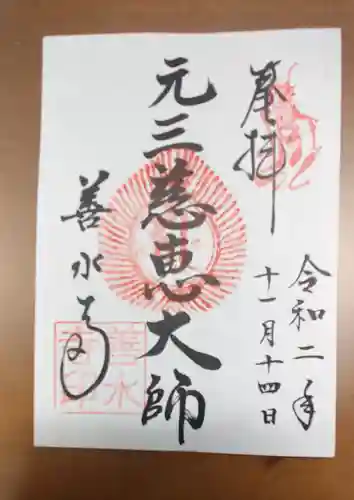 奉拝
令和二年
十一月十四日
元三慈恵大師
善水寺
善水
寺印